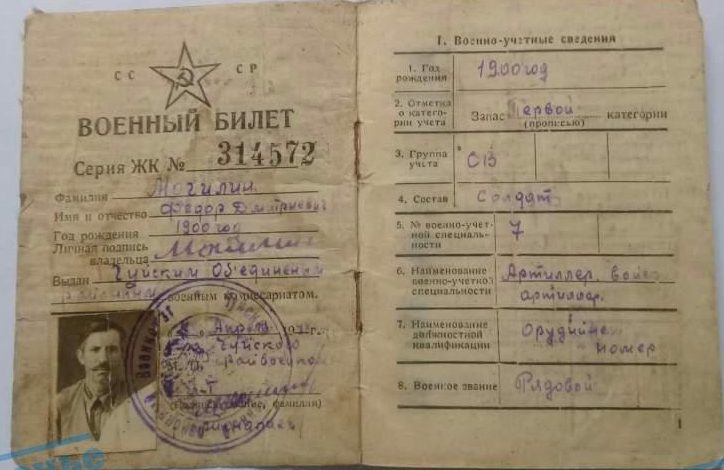 СС СР
ВОЕННЫЙ БИЛЕТ
Серия ЖК № 314572
Фамилия Могилин
Имя и отчество Федор Дмитриевич
Год рождения 1900 год
Личная подпись
владельца
Выдан Чуйским Объединеным
районным военным комиссариатом.
Апреля
Чуйского
Райвоенкома
I. Военно-учетные сведения
1. Год
рождения
1900 год
2. Отметка
о катего-
рии учета
Запас Первой категории
(прописью)
3. Группа
учета
ОВ
4. Состав
Солдат
5. № военно-учет-
ной специаль-
ности
7
6. Наименование
военно-учетной
специальности
Артиллер. войск
артиллер.
7. Наименование
должностной
квалификации
Орудийный
номер
8. Военное звание
Рядовой
1